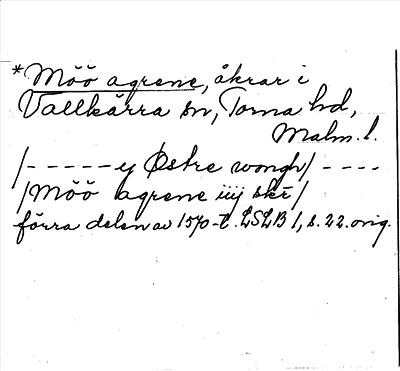 *Möö agrene, åkrar i
Vallkärra sn, Torna hd,
Malm. l.
/-----y Østre wongh/----
/Möö agrene iiij skr/
förra delen av 1570-t. LSLB 1, s. 22. orig.